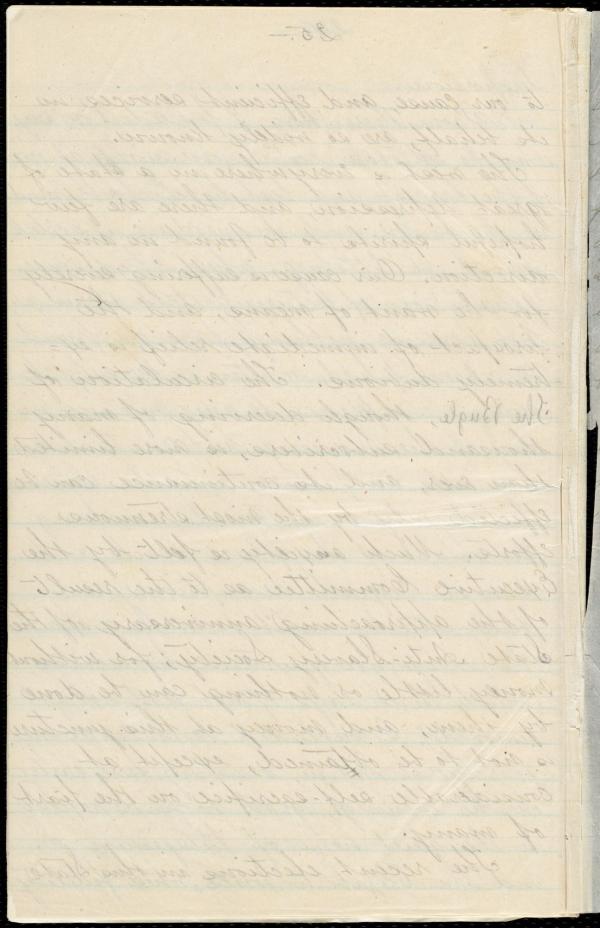 25.—
to our cause, and efficient services in
its behalf, are so widely known.
The West is everywhere in a state of
great depression, and there are few
hopeful spirits to be found in any
direction. Our cause is suffering greatly
for the want of means, and the
prospect of immediate relief is ex-
tremely dubious. The circulation of
The Bugle, though deserving of many
thousand subscribers, is more limited
than ever, and its continuance can be
effected only by the most strenuous
efforts. Much anxiety is felt by the
Executive Committee as to the result
of the approaching anniversary of the
State Anti-Slavery Society; for without
money little or nothing can be done
by them, and money at this juncture
is not to be obtained, except at
considerable self-sacrifice on the part
of many.
The recent elections in this State,